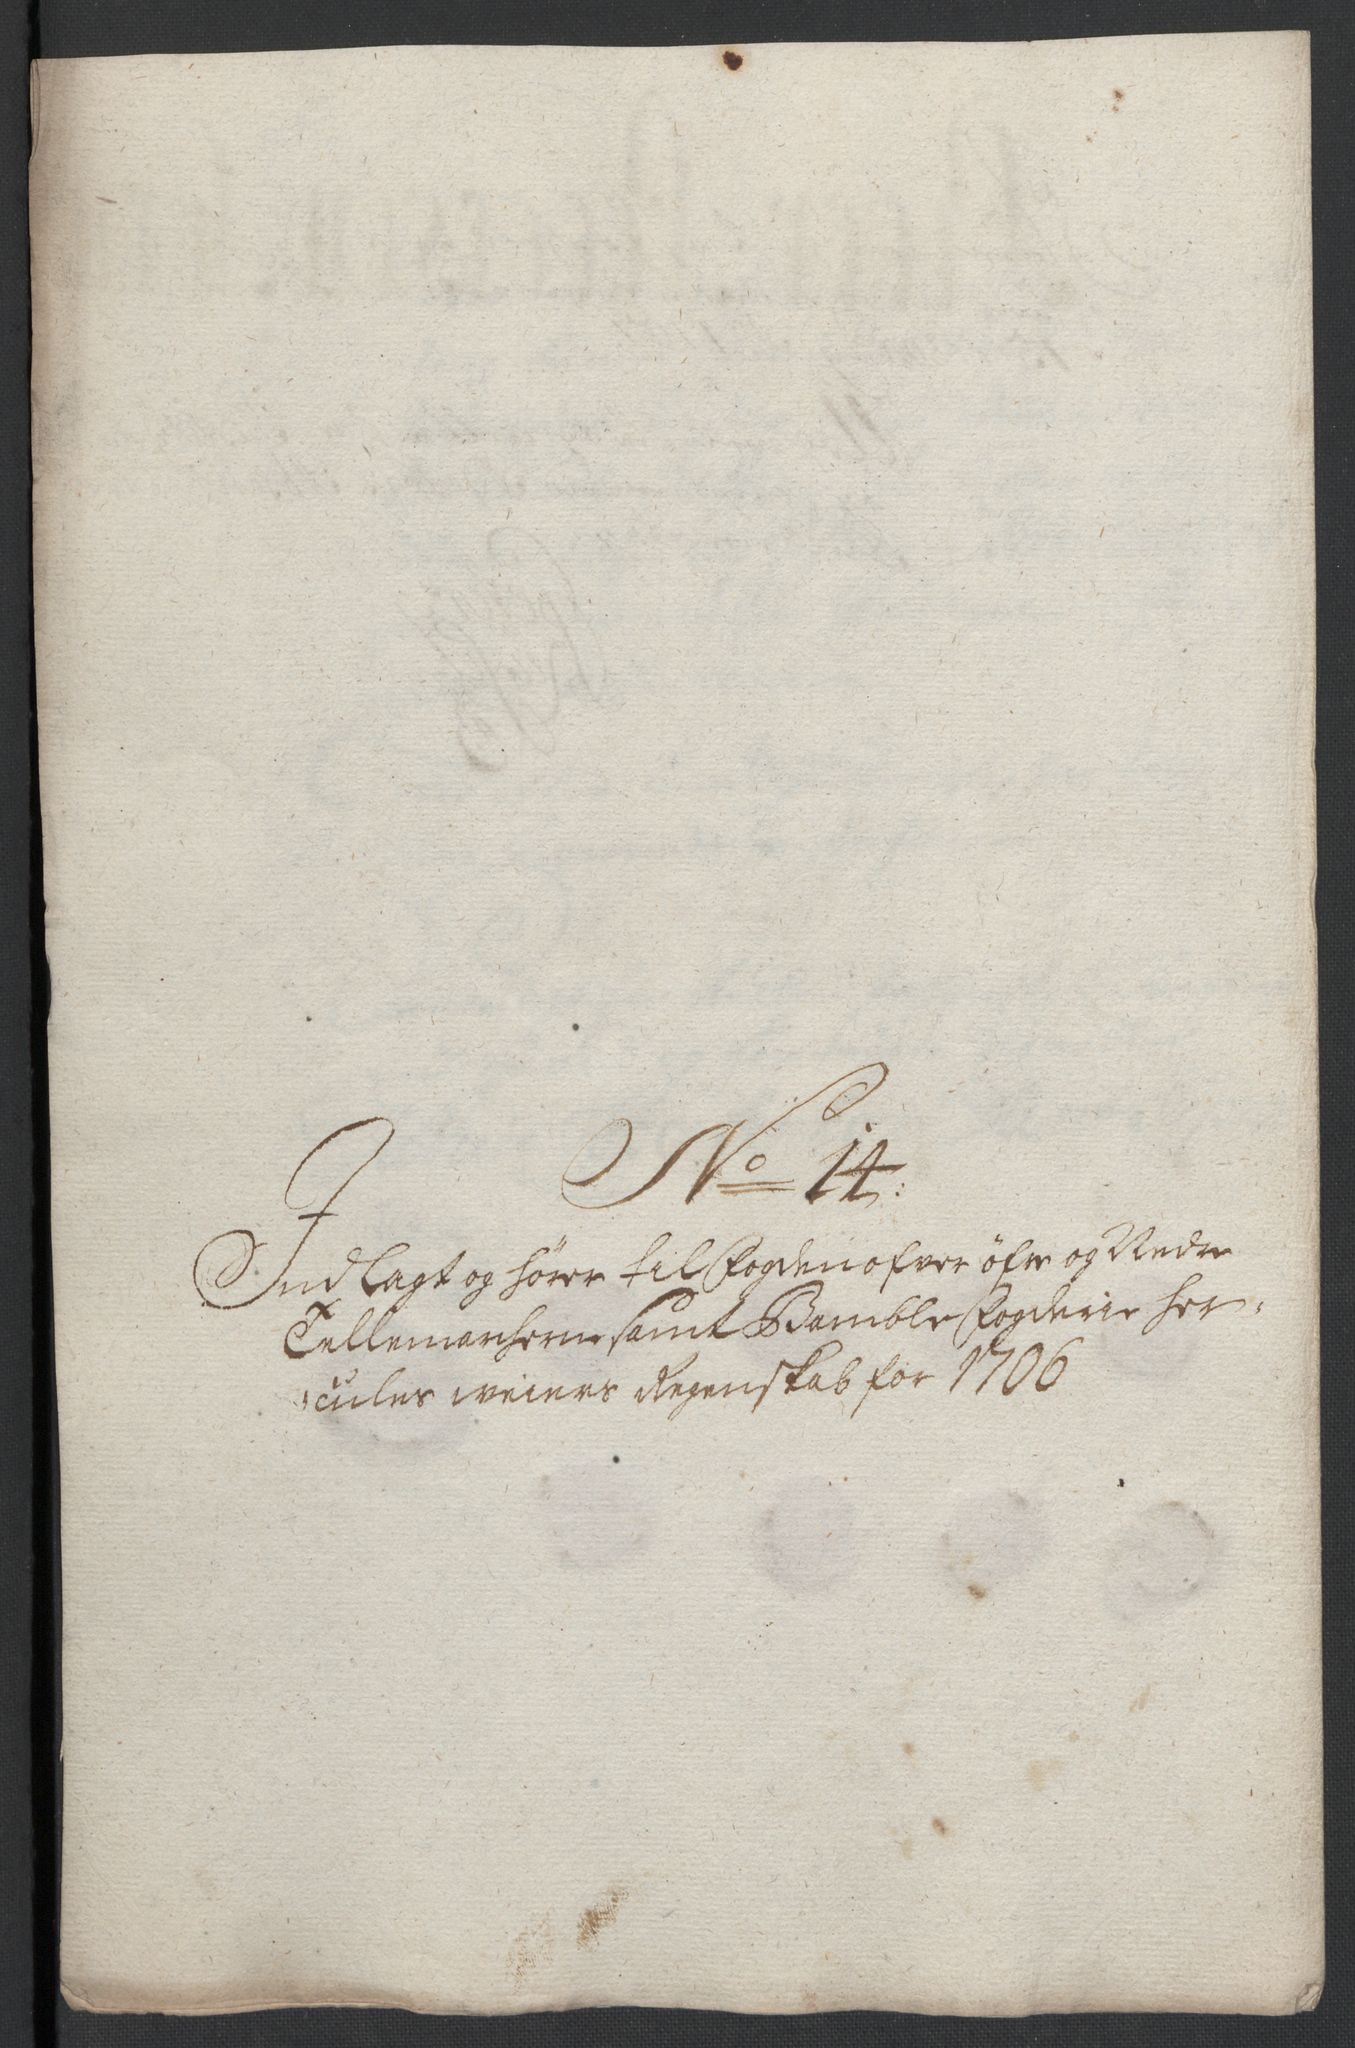 No 14:
Indlagt og hører til Fogden ofver øfre og Nedre
Tellemarcherne samt Bamble Fogderie Her-
cules Weiers Regenskab for 1706